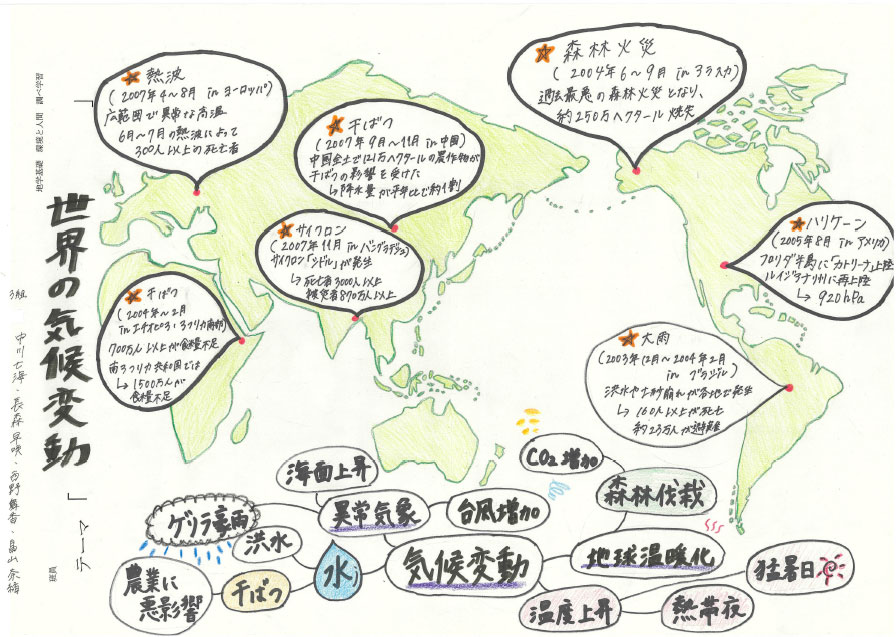 地学基礎 環境と人間 調べ学習
世界の気候変動
テーマ「 」
班員
3組
中川七海・長森早咲・西野
熱波
(2007年4～8月 in ヨーロッパ)
広範囲で異常な高温
6月～7月の熱波によって
300人以上の死亡者
干ばつ
(2007年9月～11月 in 中国)
中国全土で121万ヘクタールの農作物が
干ばつの影響を受けた
↳降水量が平年比で約1割
森林火災
(2004年6～9月 in アラスカ)
過去最悪の森林火災となり、
約250万ヘクタール焼失
サイクロン
(2007年11月 in バングラデシュ)
サイクロン「シドル」が発生
↳死亡者3000人以上
被災者870万人以上
ハリケーン
(2005年8月 in アメリカ)
フロリダ半島に「カトリーナ」上陸
ルイジアナ州に再上陸
↳920hPa
干ばつ
(2004年～2月
in エチオピア・アフリカ南部)
700万人以上が食糧不足
南アフリカ共和国では
↳1500万人が
食糧不足
大雨
(2003年12月～2004年2月
in ブラジル)
洪水や土砂崩れが各地で発生
↳160人以上が死亡
約23万人が避難
海面上昇
CO2増加
ゲリラ豪雨
異常気象
台風増加
森林伐栽
洪水
水
気候変動
地球温暖化
猛暑日
農業に
悪影響
干ばつ
温度上昇
熱帯夜